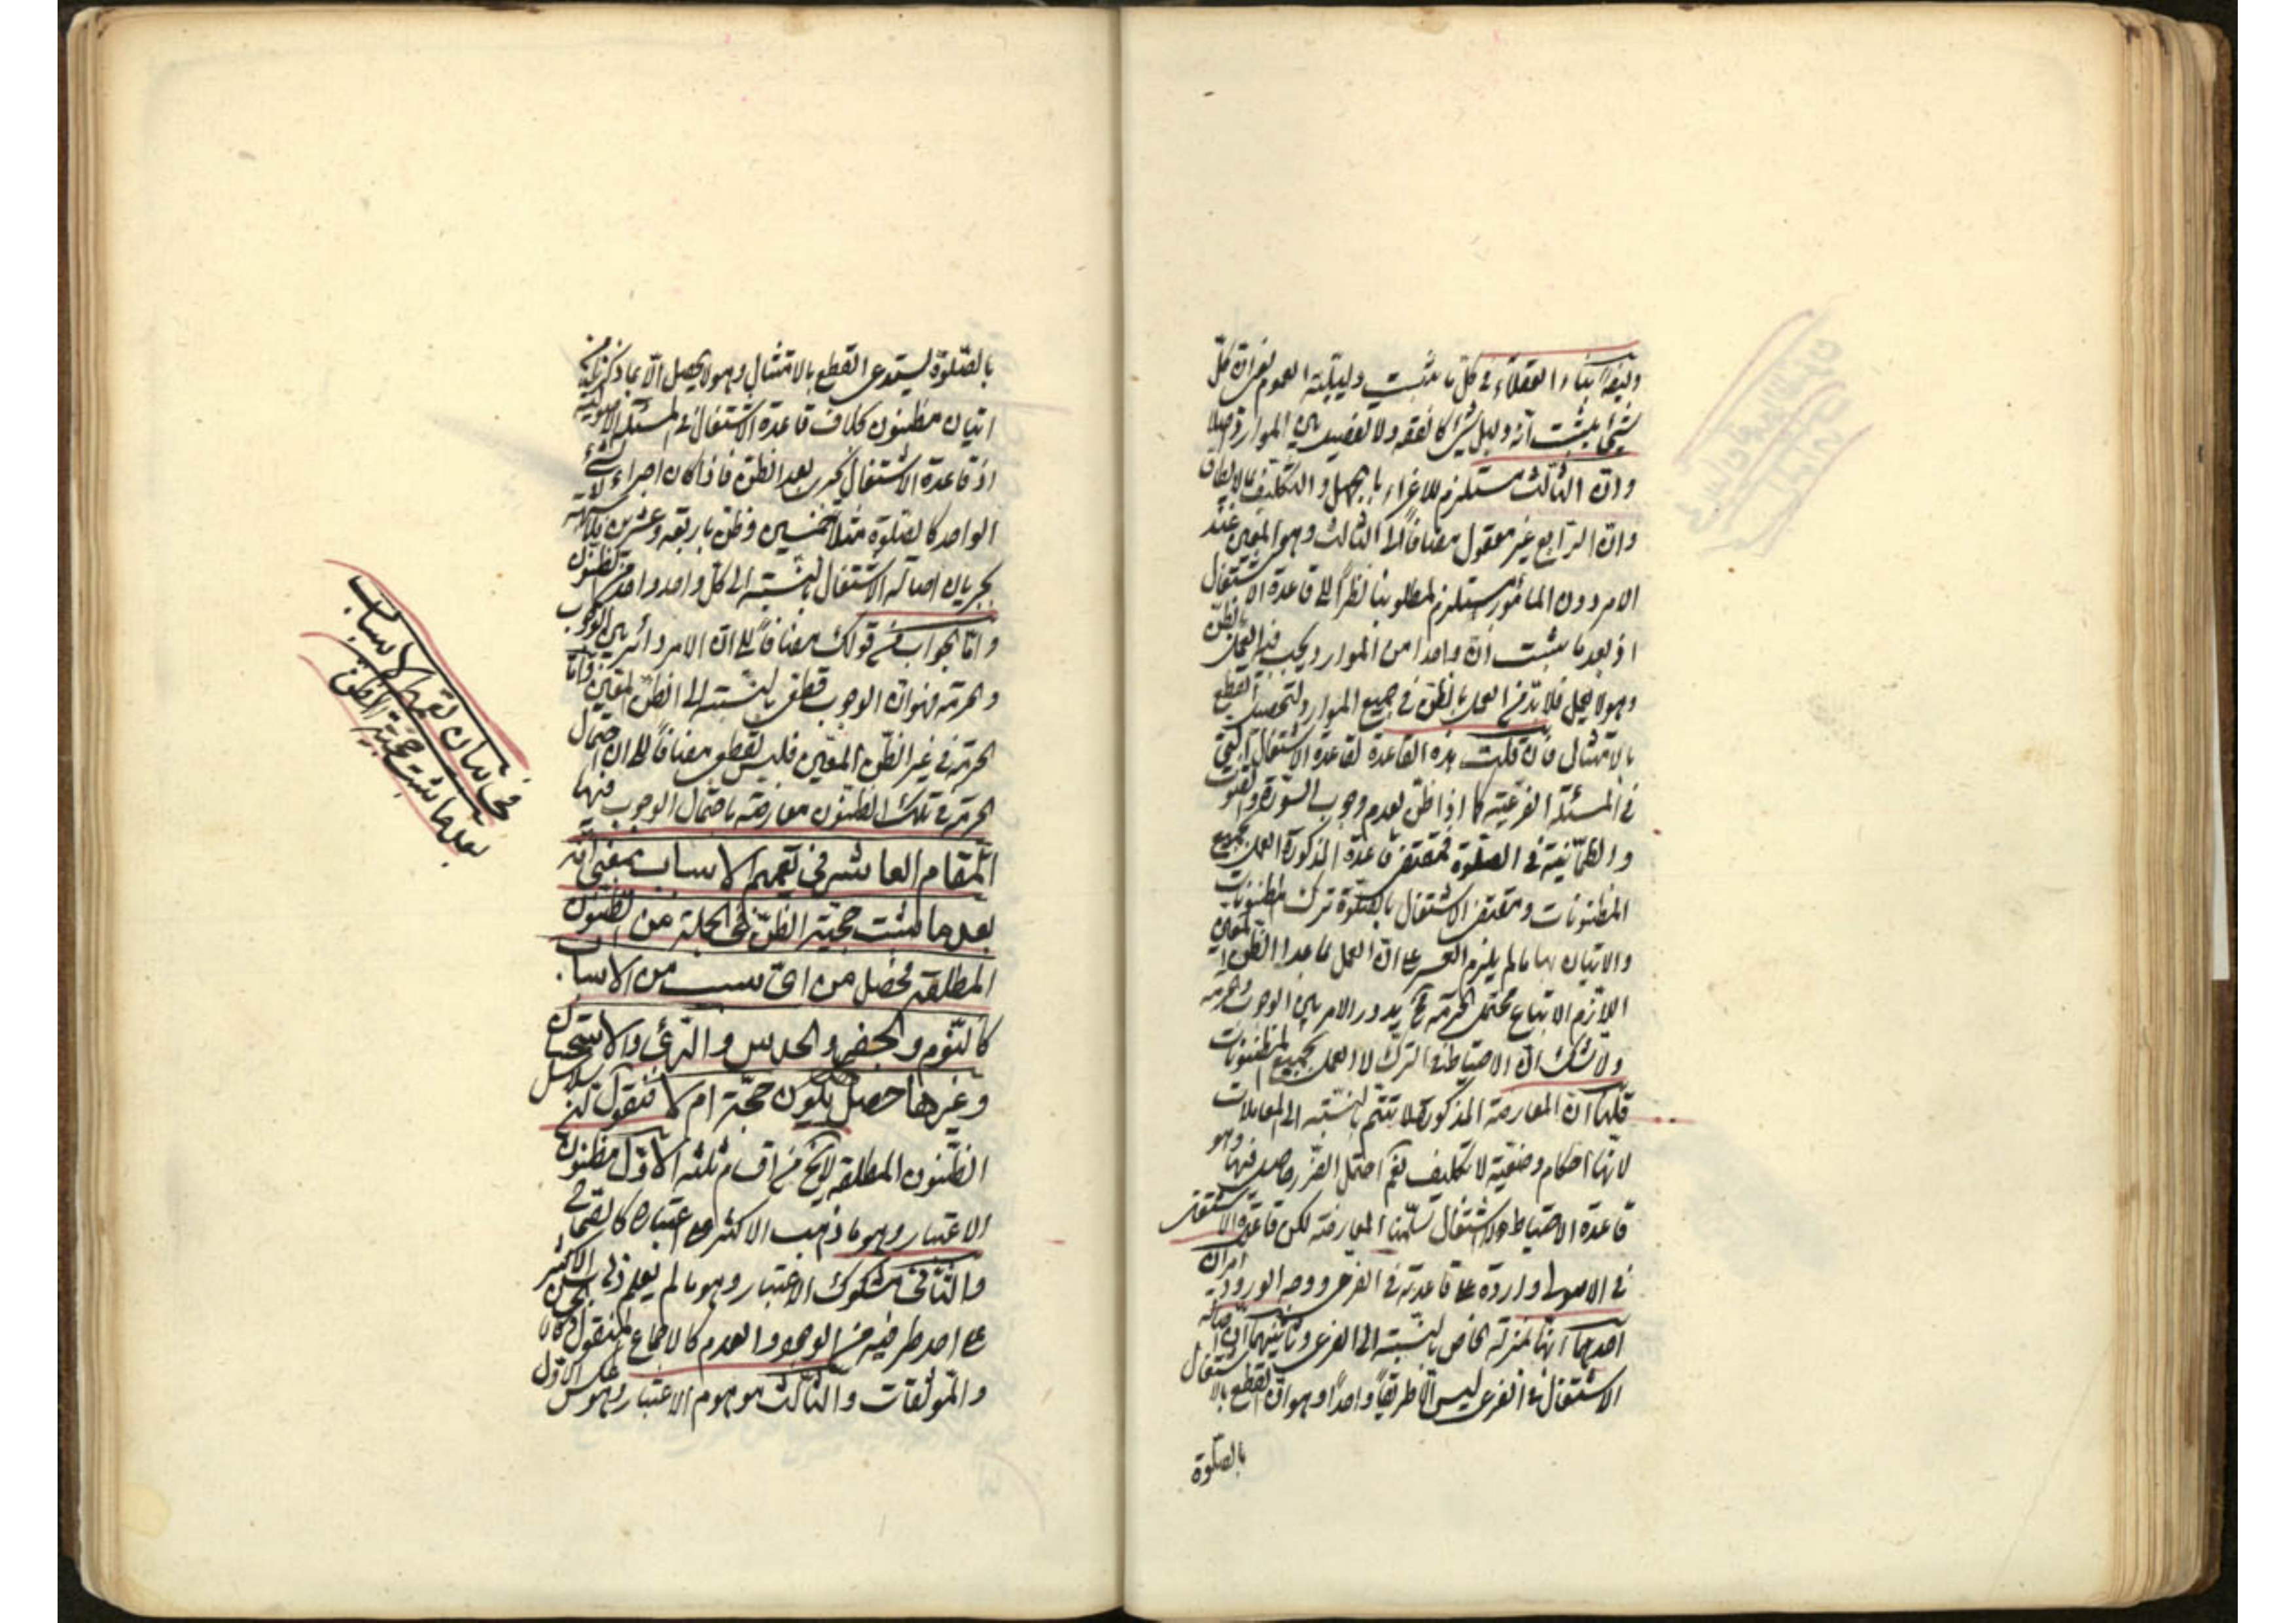 وايضا بناء العقلاء في كل ما يثبت دليليته العموم لغرائه كل
شئ يثبت انه دليل شئ كالفقه ولا تفصيل بين الموارد اصلا
وان الثالث مستلزم للاغراء بالجهل والتكليف بما لا يطاق
وان الرابع غير معقول مضافا الى الثالث وهو المعين عند
الامر دون المأمور مستلزم لمطلوبنا نظرا الى قاعدة الاشتغال
اذ بعد ما يثبت ان واحدا من الموارد يجب فيه العمل بالظن
وهو لا يعمل فلا بد من العمل بالظن في جميع الموارد لتحصيل القطع
بالامتثال فان قلت هذه القاعدة لقاعدة الاشتغال التي
في المسئلة الفرعية كما اذا ظن بعدم وجوب السورة والقنوت
والطمأنينة في الصلوة فمقتضى قاعدة المذكورة العمل بجميع
المظنونات ومقتضى الاشتغال بالصلوة ترك المظنونات
والاتيان بها ما لم يلزم العسر على ان العمل بما عدا الظن المعين
اللازم الاتباع محتمل الحرمة فح يدور الامر بين الوجوب والحرمة
ولا شك ان الاحتياط في الترك لا العمل بجميع المظنونات
قلنا ان المعارضة المذكورة لا تتم بالنسبة الى المعاملات
لانها احكام وضعية لا تكليف نعم احتمل الضرر حاصل فيها وهو
قاعدة الاحتياط والاشتغال سلمنا المعارضة لكن قاعدة الاشتغال
في الاصول واردة على قاعدته في الفرعى ووجه الورود امران
احدهما انها بمنزلة الخاص بالنسبة الى الفرعى وثانيهما ان اصالة
الاشتغال في الفرعى ليس الا طريقا واحدا وهو ان القطع بالاشتغال
بالصلوة
بالصلوة يستدعى القطع بالامتثال وهو لا يحصل الا بما ذكرنا من
اتيان مظنون بخلاف قاعدة الاشتغال في المسئلة الاصولية
اذ قاعدة الاشتغال يجرى بعد الظن فاذا كان اجزاء الشئ
الواحد كالصلوة مثلا خمسين وظن باربعة وعشرين
بجريان اصالة الاشتغال بالنسبة الى كل واحد واحد من الظنون
واما الجواب عن قولك مضافا الى ان الامر دائر بين الوجوب
والحرمة فهو ان الوجوب قطعى بالنسبة الى الظن المعين واما
الحرمة في غير الظن المعين فليس بقطعى مضافا الى ان احتمال
الحرمة في تلك الظنون معارضة باحتمال الوجوب فيها
المقام العاشر في تعميم الاسباب بمعنى انه
بعد ما يثبت حجية الظن في الجملة من الظنون
المطلقة فحصل من اى سبب من الاسباب
كالنوم والجفر والحدس والرأى والاستحسان
وغيرها حصل يكون حجة ام لا فنقول
الظنون المطلقة لا يخ من اقسام ثلثة الاول مظنون
الاعتبار وهو ما ذهب الاكثر على اعتباره كالصحاح
والثانى مشكوك الاعتبار وهو ما لم يعلم ذلك الاكثر
على احد طرفيه من الوجود والعدم كالاجماع المنقول
والموثقات والثالث موهوم الاعتبار وهو عكس الاول
في بيان تعميم الاسباب
بعد ما يثبت حجية الظن